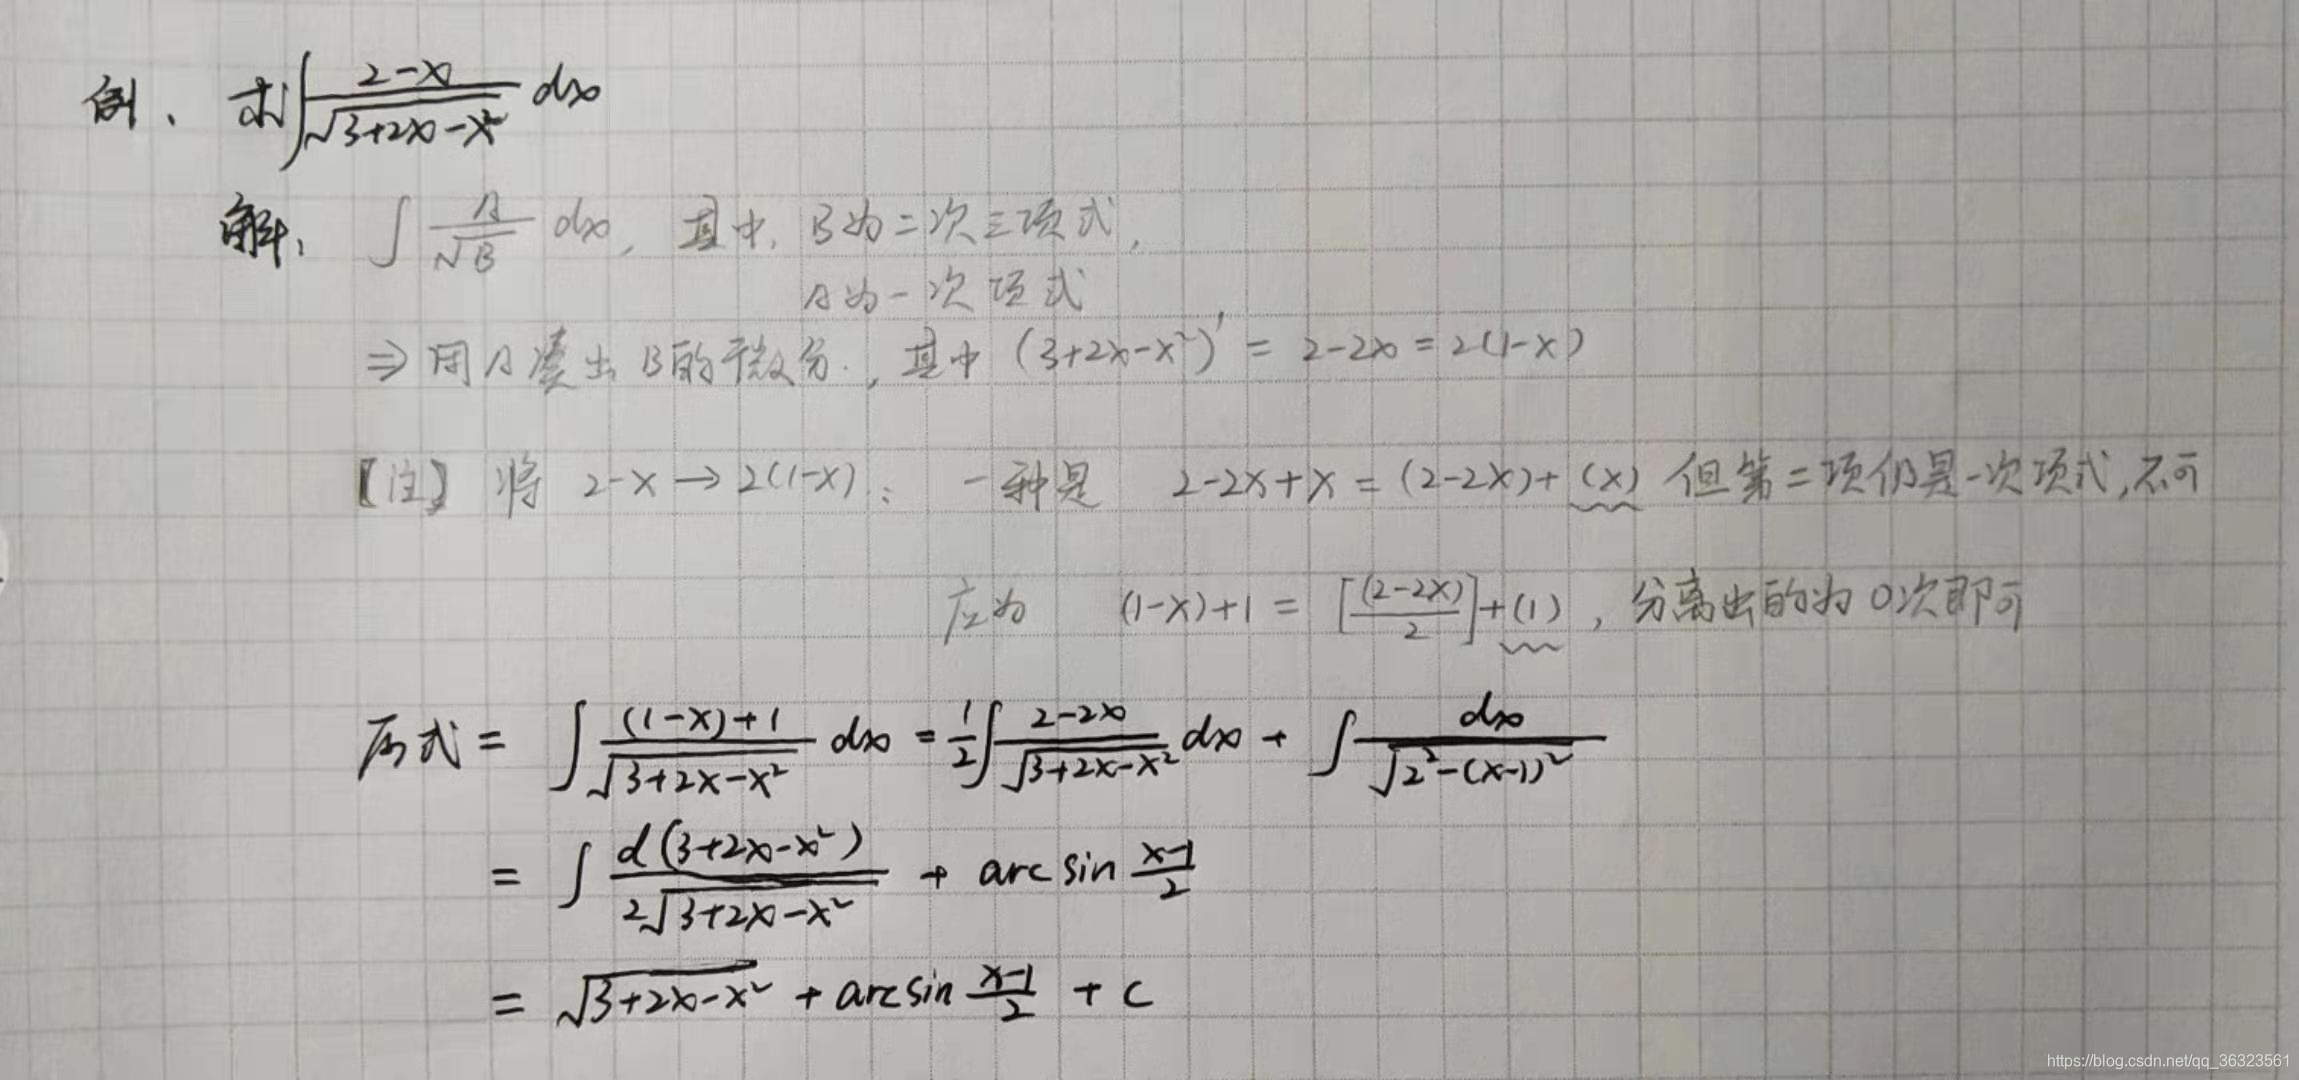 例、求∫(2-x)/√(3+2x-x²) dx
解: ∫A/√B dx, 其中, B为二次三项式,
A为一次项式
⇒ 用A凑出B的微分, 其中 (3+2x-x²)' = 2-2x = 2(1-x)
【注】 将 2-x → 2(1-x): 一种是 2-2x+x = (2-2x)+(x) 但第二项仍是一次项式,不可
应为 (1-x)+1 = [(2-2x)/2]+(1), 分离出的为0次即可
原式 = ∫((1-x)+1)/√(3+2x-x²) dx = 1/2∫(2-2x)/√(3+2x-x²) dx + ∫dx/√(2²-(x-1)²)
= ∫d(3+2x-x²)/(2√(3+2x-x²)) + arcsin (x-1)/2
= √(3+2x-x²) + arcsin (x-1)/2 + c
https://blog.csdn.net/qq_36323561